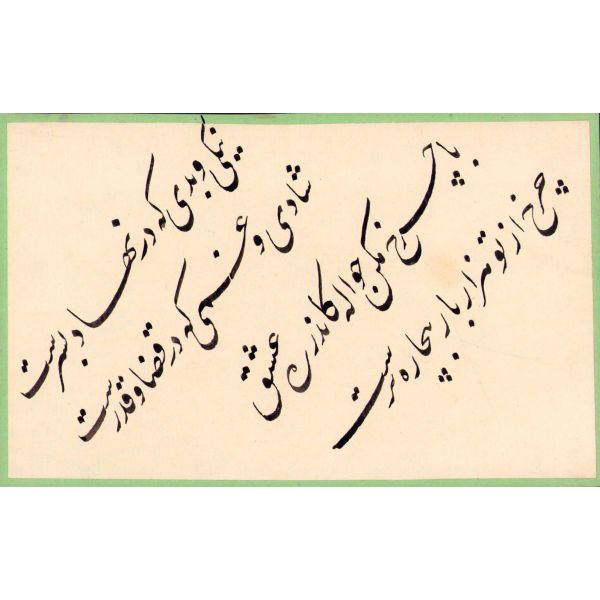 نیکی و بدی که در نهاد بشرست
شادی و غمی که در قضا و قدرست
با چرخ مکن حواله کاندر ره عشق
چرخ از تو هزار بار بیچاره ترست